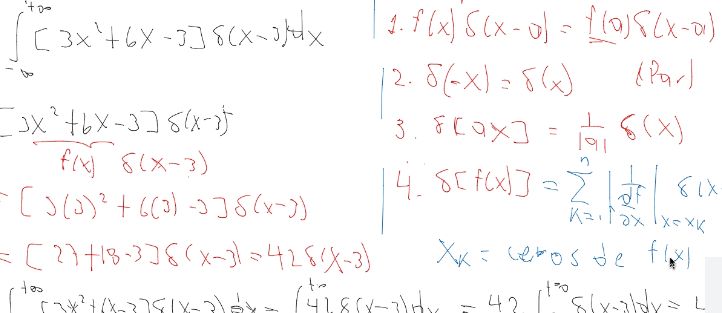 ∫_{-∞}^{+∞} [3x²+6x-3] δ(x-3) dx
[3x²+6x-3] δ(x-3)
f(x) δ(x-3)
= [3(3)²+6(3)-3] δ(x-3)
= [27+18-3] δ(x-3) = 42 δ(x-3)
∫^{+∞} [3x²+6x-3] δ(x-3) dx = ∫^{+∞} 42 δ(x-3) dx = 42 ∫^{+∞} δ(x-3) dx = 4
1. f(x) δ(x-a) = f(a) δ(x-a)
2. δ(-x) = δ(x) (Par)
3. δ[ax] = 1/|a| δ(x)
4. δ[f(x)] = Σ_{k=1}^{n} |1/(df/dx)|_{x=x_k} δ(x
x_k = ceros de f(x)